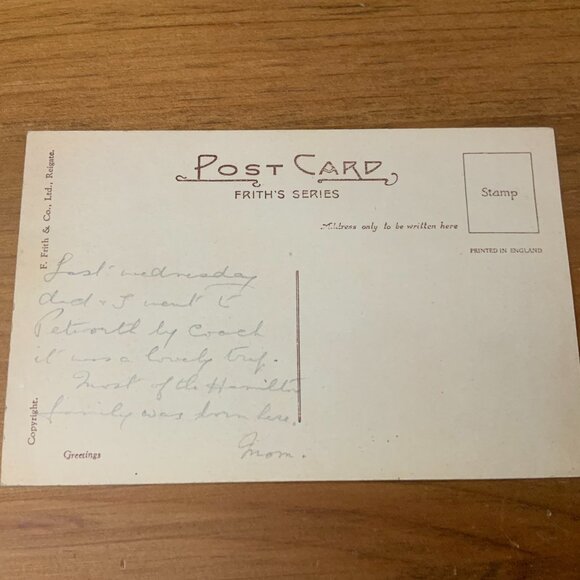 POST CARD
FRITH'S SERIES
Stamp
Address only to be written here
PRINTED IN ENGLAND
F. Frith & Co., Ltd., Reigate.
Last wednesday
dad & I went to
Petworth by coach
it was a lovely trip.
Most of the Hamilton
family was born here.
Mom.
Copyright.
Greetings